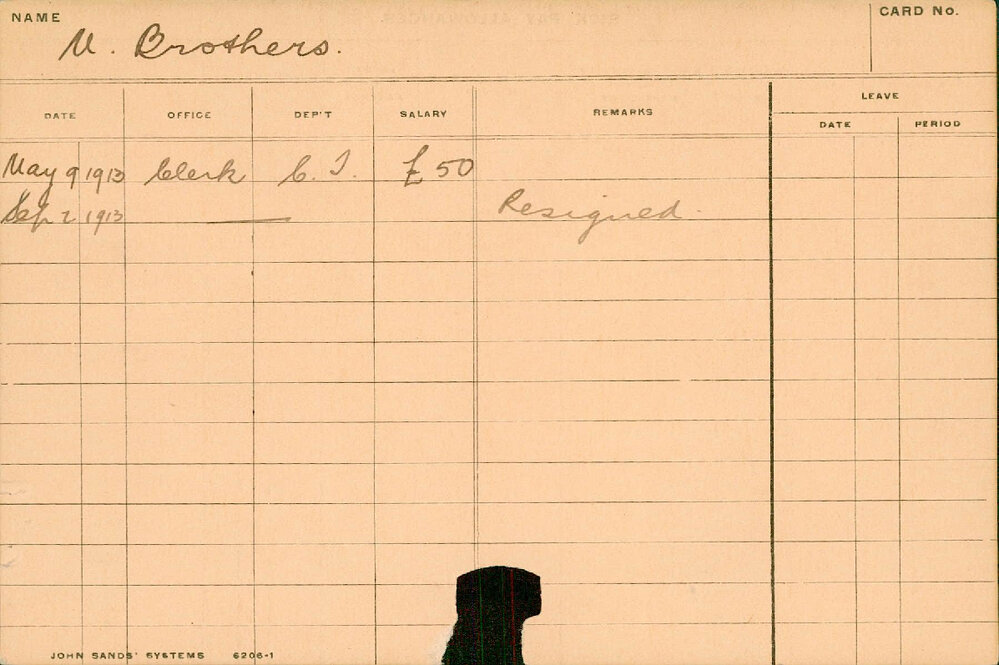 NAME CARD No.
V. Brothers.
LEAVE
DATE OFFICE DEP'T SALARY REMARKS DATE PERIOD
May 9 1913 Clerk C. I. £50
Sep 2 1913 Resigned.
JOHN SANDS' SYSTEMS 6206-1